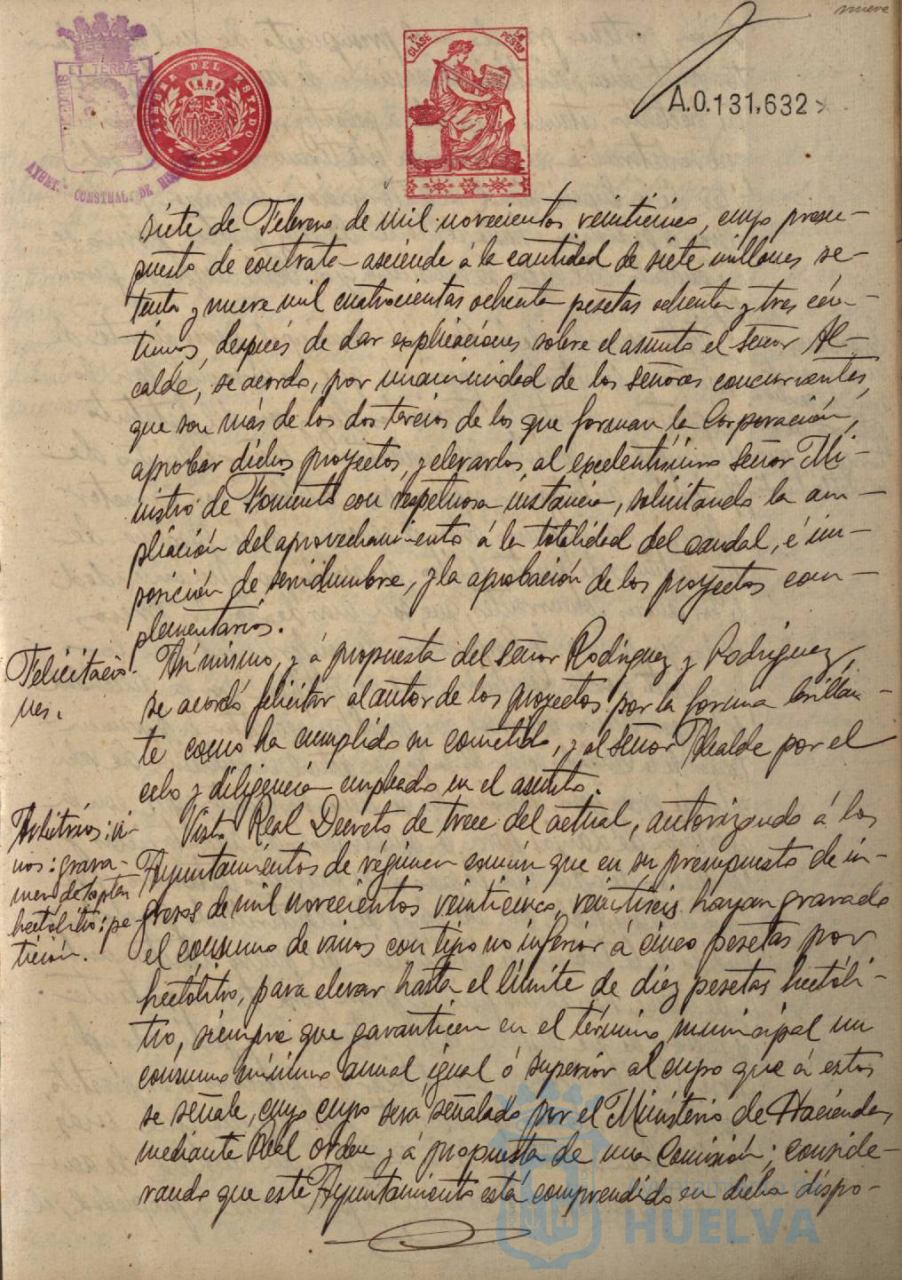 nueve
7ª CLASE
PESETAS
A.0.131,632
TIMBRE DEL ESTADO
PORTUS MARIS ET TERRAE
AYUNT. CONSTNAL. DE HUELVA
siete de Febrero de mil novecientos veinticinco, cuyo presu-
puesto de contrata asciende á la cantidad de siete millones se-
tenta y nueve mil cuatrocientas ochenta pesetas ochenta y tres cén-
timos, después de dar explicaciones sobre el asunto el señor Al-
calde, se acordó, por unanimidad de los señores concurrentes,
que son más de los dos tercios de los que forman la Corporación,
aprobar dichos proyectos, y elevarlos al excelentísimo señor Mi-
nistro de Fomento con respetuosa instancia, solicitando la am-
pliación del aprovechamiento á la totalidad del caudal, é im-
posición de servidumbre, y la aprobación de los proyectos com-
plementarios.
Felicitacio-
nes.
Asimismo, y á propuesta del señor Rodríguez y Rodríguez,
se acordó felicitar al autor de los proyectos por la forma brillan-
te como ha cumplido su cometido, y al señor Alcalde por el
celo y diligencia empleado en el asunto.
Arbitrios: vi-
nos: grava-
men de ptas
hectolitro: pe-
tición.
Visto Real Decreto de trece del actual, autorizando á los
Ayuntamientos de régimen común que en su presupuesto de in-
gresos de mil novecientos veinticinco, veintiseis hayan gravado
el consumo de vinos con tipo no inferior á cinco pesetas por
hectólitro, para elevar hasta el límite de diez pesetas hectóli-
tro, siempre que garanticen en el término municipal un
consumo mínimo anual igual ó superior al cupo que á estos
se señale, cuyo cupo será señalado por el Ministerio de Hacienda,
mediante Real orden y á propuesta de una Comisión; conside-
rando que este Ayuntamiento está comprendido en dicha dispo-
HUELVA